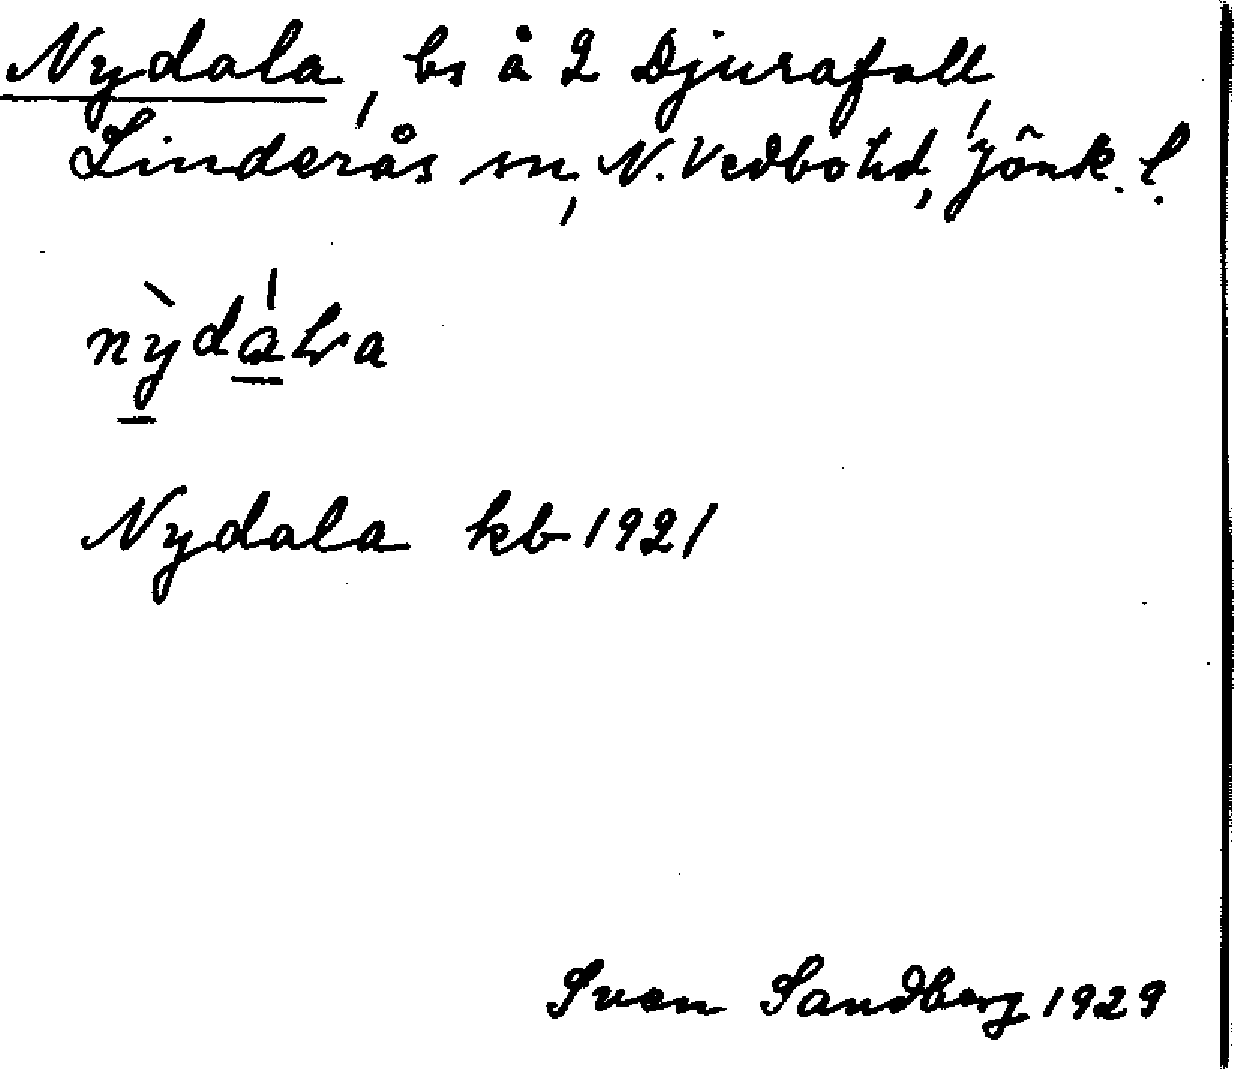 Nydala, bs å 2 Djurafall,
Linderås sn, N. Vedbo hd, Jönk. l.
Nydala kb 1921
Sven Sandberg 1929